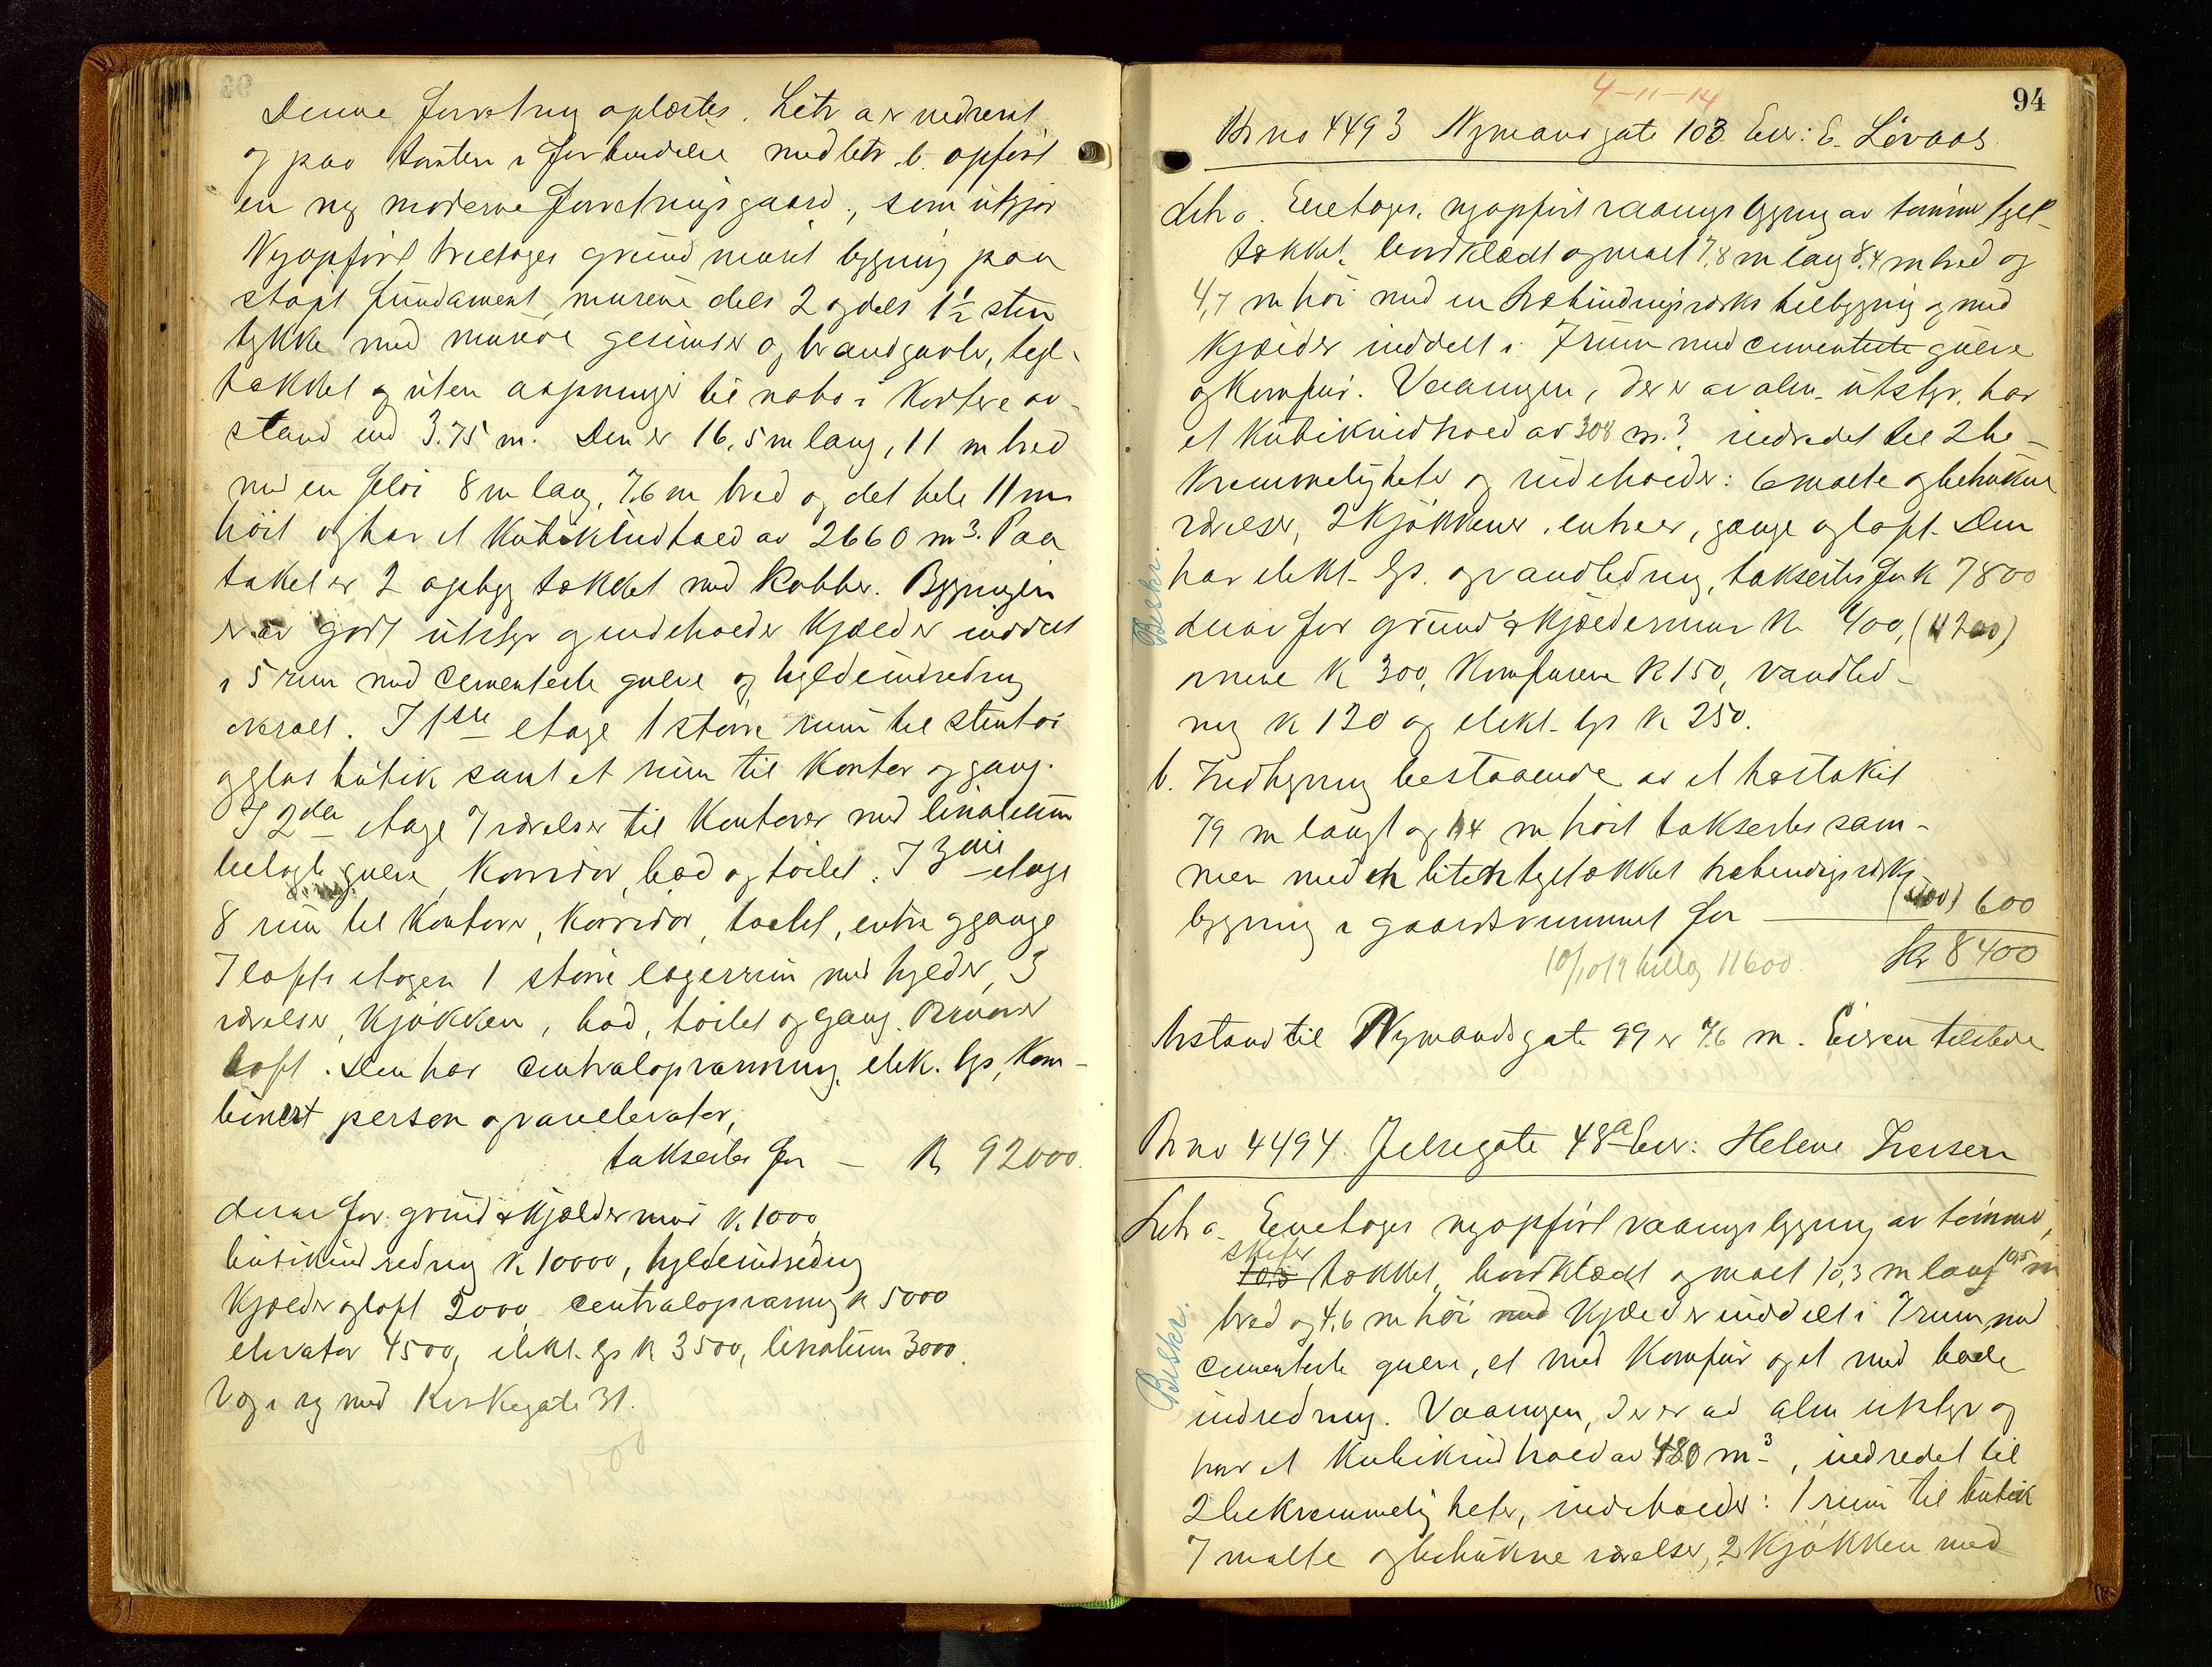 Denne forretning oplæstes. Litr a er nedrevet
og paa tomten i forbindelse med litr. b. opført
en ny moderne forretningsgaard, som utgjør
Nyopført treetages grundmuret bygning paa
støpt fundament, murene dels 2 og dels 1½ sten
tykke med murede gesimser og brandgavle, tegl-
tækket og uten aapninger til nabo i kortere av-
stand end 3.75 m. Den er 16,5 m lang, 11 m bred
med en fløi 8 m lang, 7.6 m bred og det hele 11 m
høit og har et kubikindhold av 2660 m³. Paa
taket er 2 opbyg tækket med kobber. Bygningen
er av godt utstyr og indeholder kjælder inddelt
i 5 rum med cementerte gulve og hyldeindredning
overalt. I 1ste etage 1 større rum til stentøi
og glas butik samt et rum til kontor og gang.
I 2den etage 7 værelser til kontorer med linoleum
belagte gulve, korridor, bad og toilet. I 3die etage
8 rum til kontorer, korridor, toilet, entre og gange
I lofts etagen 1 større lagerrum med hylder, 3
værelser, kjøkken, bad, toilet og gang. Derover
loft. Den har centralopvarmning, elek. lys, kom-
binert person og vareelevator,
taksertes for — Kr 92000.
derav for grund & kjældermur k. 1000,
butikindredning k. 10000, hyldeindredning
kjælder og loft 2000, centralopvarmng k 5000
elevator 4500, elekt. lys k 3500, linoleum 3000.
V og i og med Kirkegate 31.
4-11-14
94
Br no 4493 Nymansgate 103. Eier: E. Løvaas
Litr a. Enetages, nyopført vaanings bygning av tømmer tegl-
tækket, bordklædt og malt 7,8 m lang 8,4 m bred og
4,7 m høi med en træbindingsverks tilbygning og med
kjælder inddelt i 7 rum med cementerte gulve
og komfur. Vaaningen, der er av alm. utstyr, har
et kubikindhold av 308 m.³ indredet til 2 be-
kvemmeligheter og indeholder: 6 malte og betrukne
værelser, 2 kjøkkener, entreer, gange og loft. Den
har elekt. lys. og vandledning, takseres for k 7800
Beskr.
derav for grund & kjældermur k 400, (4200)
ovnene k 300, komfurene k 150, vandled-
ning k 120 og elekt. lys k 250.
b. Indhegning bestaaende av et træstakit
79 m langt og 1.4 m høit takseres sam-
men med en liten tegltækket træbindingsverks
bygning i gaardsrummet for — 600
Kr 8400
10/10 19 tillæg 11600.
Avstand til Nymandsgate 99 er 7.6 m. Eieren tilstede
Br no 4494. Jelsegate 48a Eier: Helene Iversen
Litr a. Enetages nyopført vaanings bygning av tømmer,
skifer
tækket, bordklædt og malt 10,3 m lang 10,5 m
bred og 4,6 m høi med kjælder inddelt i 7 rum, med
Beskr.
cementerte gulve, et med komfur og et med bade
indredning. Vaaningen, der er av alm utstyr og
har et kubikindhold av 480 m³, indredet til
2 bekvemmeligheter, indeholder: 1 rum til butik
7 malte og betrukne værelser, 2 kjøkken med